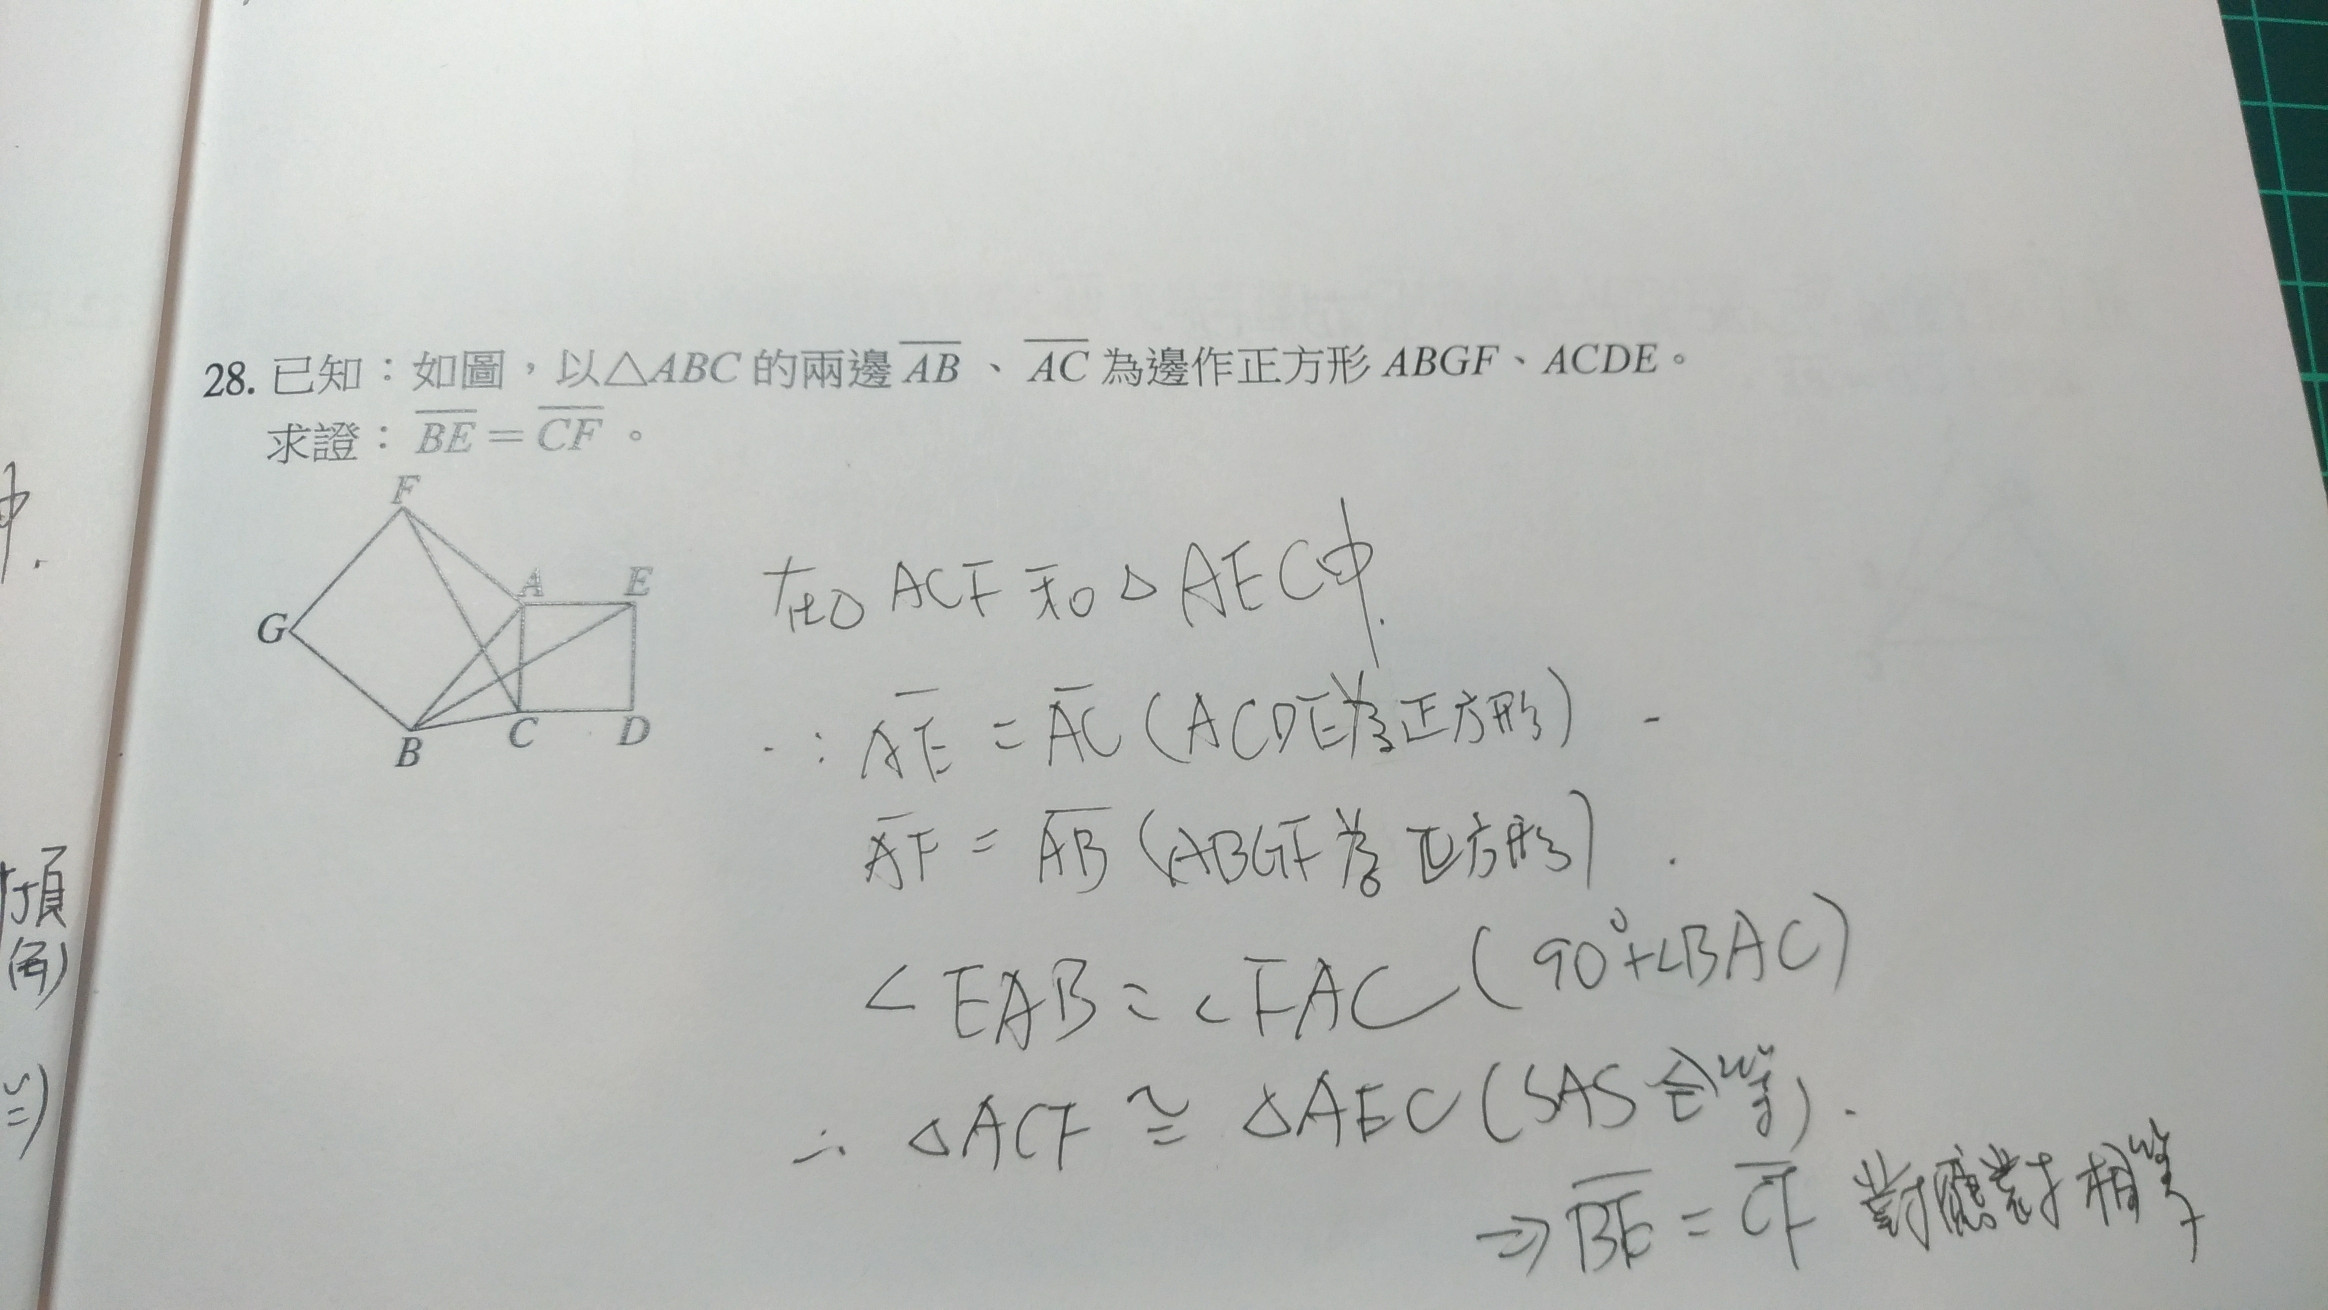 28. 已知：如圖，以△ABC 的兩邊 AB、AC 為邊作正方形 ABGF、ACDE。
求證：BE＝CF。
F
A
E
G
B
C
D
在△ACF 和△AEC中.
∵ AE = AC (ACDE為正方形)
AF = AB (ABGF為正方形)
∠EAB = ∠FAC (90°+∠BAC)
∴ △ACF ≅ △AEC (SAS全等).
⇒ BE = CF 對應對相等
中.
頂
角)